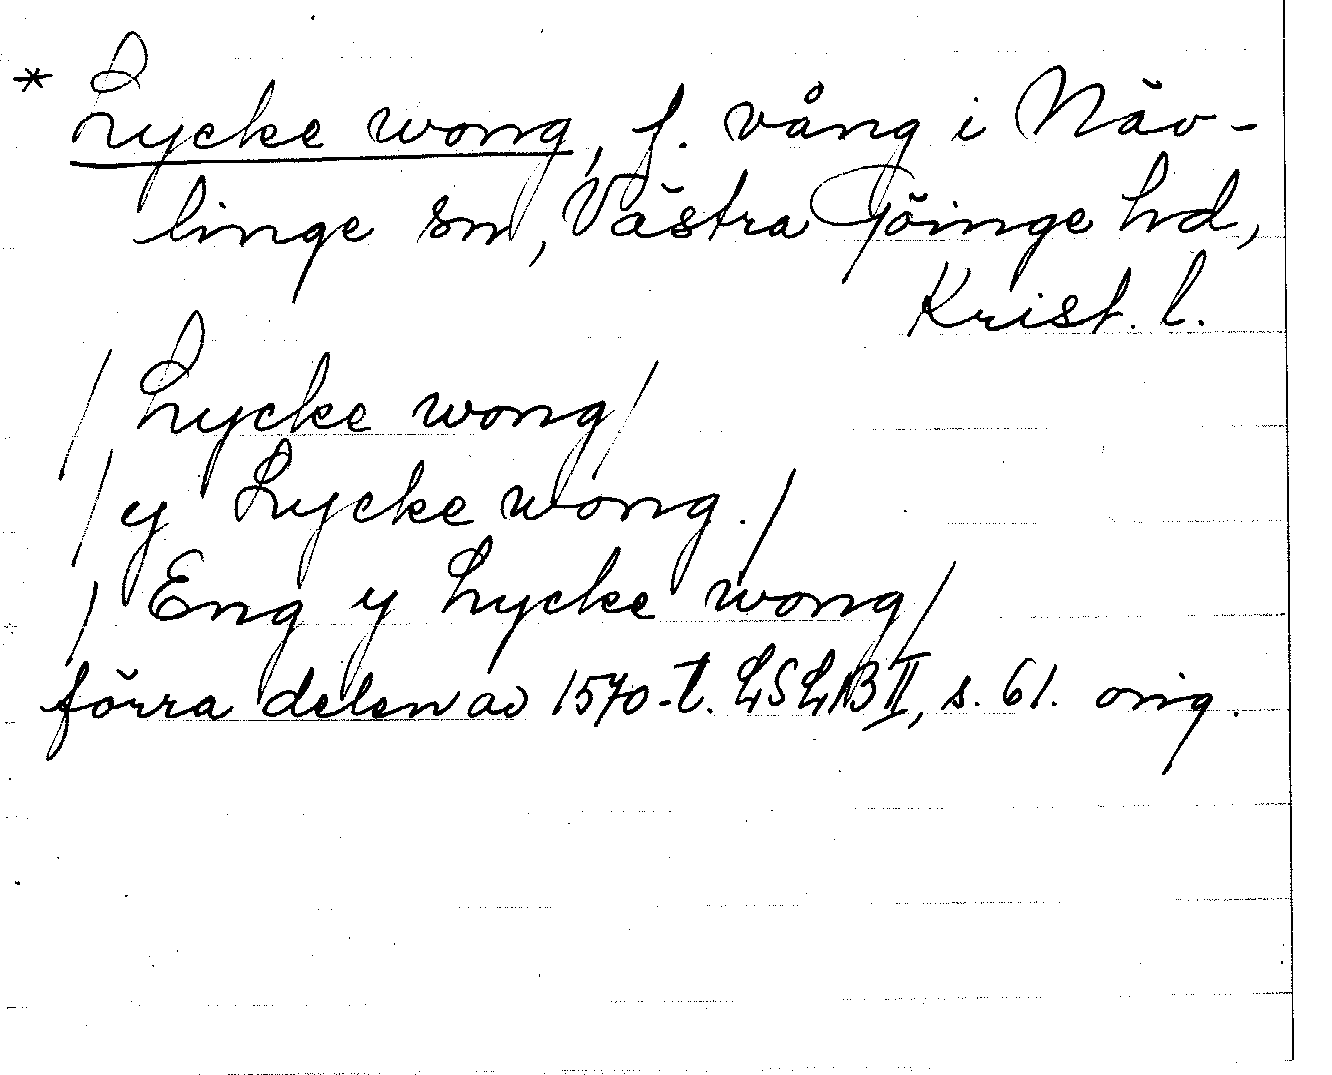 * Lycke wong, f. vång i Näv-
linge sn, Västra Göinge hd,
Krist. l.
/ Lycke wong/
/ y Lycke wong./
/ Eng y Lycke wong/
förra delen av 1570-t. LSLB II, s. 61. orig.